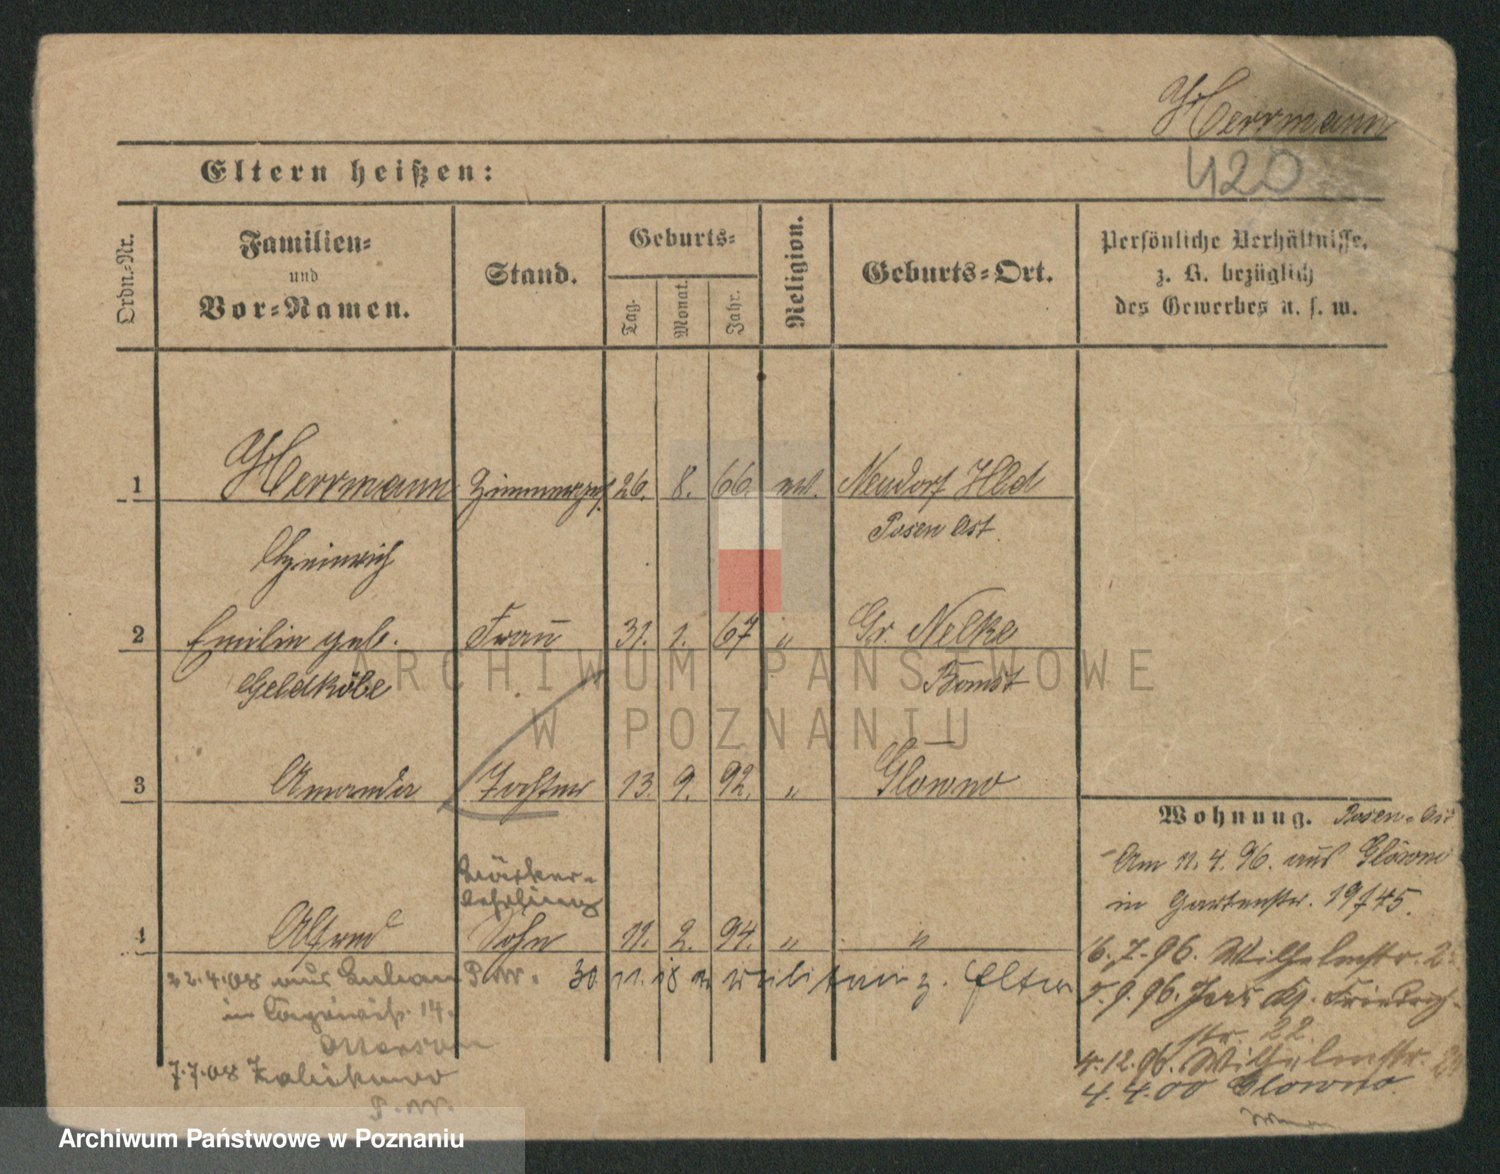 Herrmann
420
Eltern heißen:
Ordn.-Nr.
Familien-
und
Vor-Namen.
Stand.
Geburts-
Tag.
Monat.
Jahr.
Religion.
Geburts-Ort.
Persönliche Verhältnisse,
z. B. bezüglich
des Gewerbes u. s. w.
1 Herrmann Zimmerges. 26. 8. 66. ev. Neudorf Hld
Posen Ost.
Heinrich
2 Emilie geb. Frau 31. 1. 67 " Gr. Nelke
Geldköbe Bomst
3 Amanda Tochter 13. 9. 92. " Glowno
Wohnung. Posen-Ost
Am 11.4.96. aus Glowno
in Gartenstr. 19/45.
lehrling
4 Alfred Sohn 11. 2. 94. " "
6.7.96. Wilhelmstr.
5.9.96. Friedrich-
str. 22.
4.12.96. Wilhelmstr.
4.4.00 Glowno.
22.4.08 aus P.W. 30 11 18 z. Eltern
in 14.
7.7.08
P.W.
ARCHIWUM PAŃSTWOWE
W POZNANIU
Archiwum Państwowe w Poznaniu